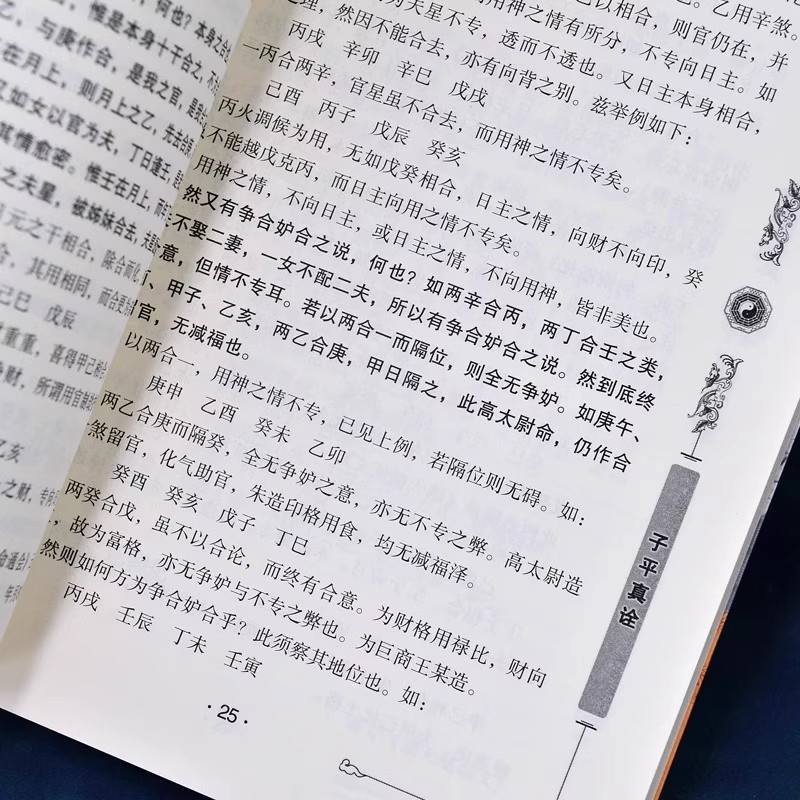 何也？本身之合
惟是本身十干合之，不
，与庚作合，是我之官，是我
在月上，则月上之乙，先去合庚
又如女以官为夫，丁日逢壬，是
其情愈密。惟壬在月上，而年
之夫星，被姊妹合去，夫星
元之干相合，除合而化
合，其用相同，而合更
己巳 戊辰
重重，喜得甲己相合
争财，所谓用官制劫
乙亥
之财，专向
命通会
已以相合，则官仍在，并
乙用辛煞。
为夫星不专，透而不透也。又日主本身相合，
，用神之情有所分，不专向日主。如
理，然因不能合去，亦有向背之别。兹举例如下：
丙戌 辛卯 辛巳 戊戌
一丙合两辛，官星虽不合去，而用神之情不专矣。
己酉 丙子 戊辰 癸亥
丙火调候为用，无如戊癸相合，日主之情，向财不向印，癸
不能越戊克丙，而日主向用之情不专矣。
用神之情，不向日主，或日主之情，不向用神，皆非美也。
然又有争合妒合之说，何也？如两辛合丙，两丁合壬之类，
不娶二妻，一女不配二夫，所以有争合妒合之说。然到底终
意，但情不专耳。若以两合一而隔位，则全无争妒。如庚午、
、甲子、乙亥，两乙合庚，甲日隔之，此高太尉命，仍作合
官，无减福也。
以两合一，用神之情不专，已见上例，若隔位则无碍。如：
庚申 乙酉 癸未 乙卯
两乙合庚而隔癸，全无争妒之意，亦无不专之弊。高太尉造
煞留官，化气助官，朱造印格用食，均无减福泽。
癸酉 癸亥 戊子 丁巳
两癸合戊，虽不以合论，而终有合意。为财格用禄比，财向
，故为富格，亦无争妒与不专之弊也。为巨商王某造。
然则如何方为争合妒合乎？此须察其地位也。如：
丙戌 壬辰 丁未 壬寅
·25·
子平真诠